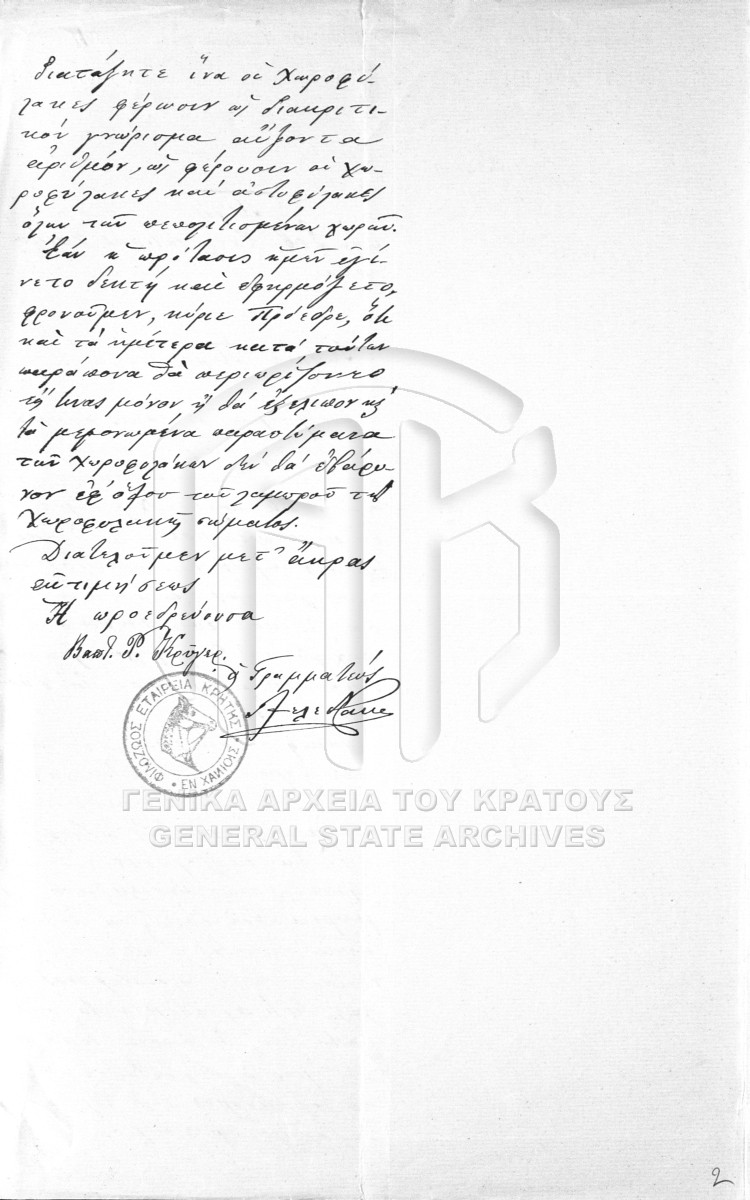 διατάξητε ἵνα οἱ Χωροφύ-
λακες φέρωσιν ὡς διακριτι-
κόν γνώρισμα αὔξοντα
ἀριθμόν, ὡς φέρουσιν οἱ χω-
ροφύλακες καί ἀστυφύλακες
ὅλων τῶν πεπολιτισμένων χωρῶν.
Ἐάν ἡ πρότασις ἡμῶν ἐγί-
νετο δεκτή καί ἐφηρμόζετο,
φρονοῦμεν, κύριε Πρόεδρε, ὅτι
καί τά ἡμέτερα κατά τούτων
παράπονα θά περιωρίζοντο
μόνον ἤ θά ἐξέλιπον κ᾽
τά μεμονωμένα παραπτώματα
τῶν Χωροφυλάκων δέν θά ἐβάρυ-
νον ἐφ᾽ ὅλου τοῦ λαμπροῦ τῆς
Χωροφυλακῆς σώματος.
Διατελοῦμεν μετ᾽ ἄκρας
ἐκτιμήσεως
Ἡ προεδρεύουσα
Β. Κρύγερ.
ὁ Γραμματεύς
ΦΙΛΟΖΩΟΣ ΕΤΑΙΡΕΙΑ ΚΡΗΤΗΣ
ΕΝ ΧΑΝΙΟΙΣ
ΓΕΝΙΚΑ ΑΡΧΕΙΑ ΤΟΥ ΚΡΑΤΟΥΣ
GENERAL STATE ARCHIVES
2